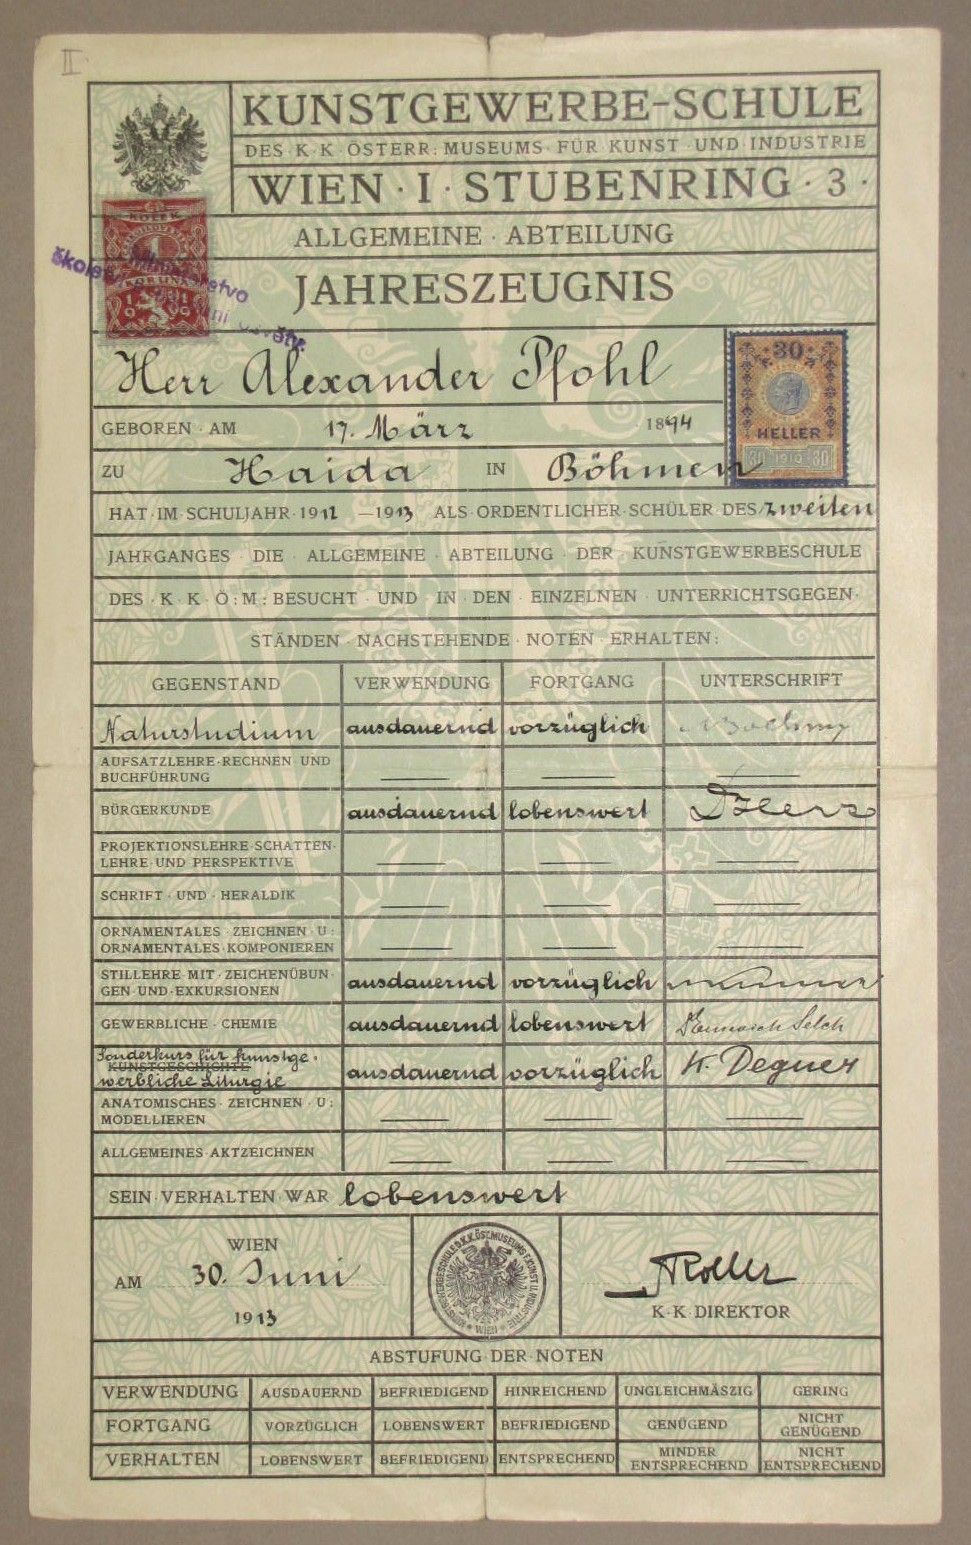 II
KUNSTGEWERBE-SCHULE
DES · K · K · ÖSTERR: MUSEUMS · FÜR · KUNST · UND · INDUSTRIE
WIEN · I · STUBENRING · 3 ·
KOLEK
1
KORUNA
1919
ALLGEMEINE · ABTEILUNG
JAHRESZEUGNIS
Herr Alexander Pfohl
30
HELLER
30 1910 30
GEBOREN · AM 17. März 1894
ZU Haida IN Böhmen
HAT · IM · SCHULJAHR · 1912 — 1913 ALS · ORDENTLICHER · SCHÜLER · DES zweiten
JAHRGANGES · DIE · ALLGEMEINE · ABTEILUNG · DER · KUNSTGEWERBESCHULE
DES · K · K · Ö : M : BESUCHT · UND · IN · DEN · EINZELNEN · UNTERRICHTSGEGEN ·
STÄNDEN · NACHSTEHENDE · NOTEN · ERHALTEN :
GEGENSTAND VERWENDUNG FORTGANG UNTERSCHRIFT
Naturstudium ausdauernd vorzüglich
AUFSATZLEHRE · RECHNEN · UND
BUCHFÜHRUNG
BÜRGERKUNDE ausdauernd lobenswert
PROJEKTIONSLEHRE · SCHATTEN-
LEHRE · UND · PERSPEKTIVE
SCHRIFT · UND · HERALDIK
ORNAMENTALES · ZEICHNEN · U :
ORNAMENTALES · KOMPONIEREN
STILLEHRE · MIT · ZEICHENÜBUN-
GEN · UND · EXKURSIONEN ausdauernd vorzüglich
GEWERBLICHE · CHEMIE ausdauernd lobenswert
Sonderkurs für kunstge-
KUNSTGESCHICHTE
werbliche Liturgie ausdauernd vorzüglich H. Degner
ANATOMISCHES · ZEICHNEN · U :
MODELLIEREN
ALLGEMEINES · AKTZEICHNEN
SEIN · VERHALTEN · WAR lobenswert
WIEN
AM 30. Juni
1913
WIEN
Roller
K · K · DIREKTOR
ABSTUFUNG · DER · NOTEN
VERWENDUNG AUSDAUERND BEFRIEDIGEND HINREICHEND UNGLEICHMÄSZIG GERING
FORTGANG VORZÜGLICH LOBENSWERT BEFRIEDIGEND GENÜGEND NICHT GENÜGEND
VERHALTEN LOBENSWERT BEFRIEDIGEND ENTSPRECHEND MINDER ENTSPRECHEND NICHT ENTSPRECHEND